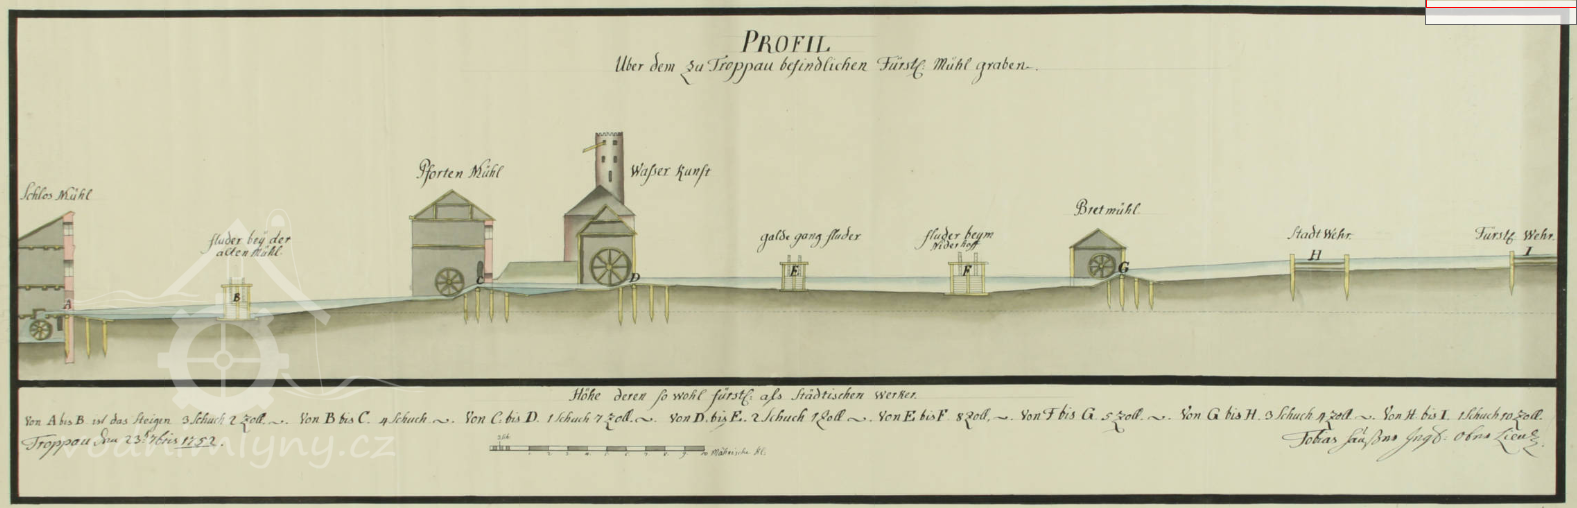 PROFIL
Uber dem zu Troppau befindlichen Fürstl. Mühl graben.
Schlos Mühl
fluder beÿ der
alten Mühl
Pforten Mühl
Waßer Kunst
galde gang fluder
fluder beÿm
Niderhoff
Bretmühl
Stadt Wehr.
Fürstl. Wehr.
A
B
C
D
E
F
G
H
I
Höhe deren so wohl fürstl: alß Städtischen Werker.
Von A bis B ist das Steigen 3 Schuch 2 Zoll. Von B bis C. 4 Schuch Von C. bis D. 1 Schuch 7 Zoll. Von D. bis E. 2 Schuch 1 Zoll Von E bis F 8 Zoll. Von F bis G. 5 Zoll. Von G bis H. 3 Schuch 4 Zoll Von H. bis I. 1 Schuch 10 Zoll.
Troppau den 23. 7bris 1752.
Mährische Kl.
Tobias
vodnimlyny.cz